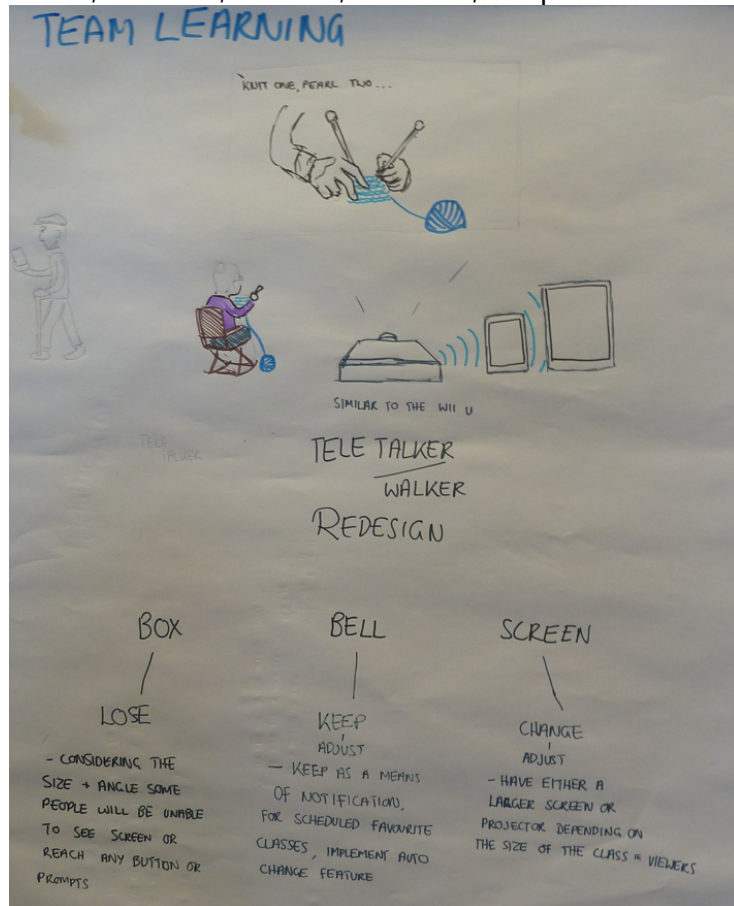 TEAM LEARNING
'KNIT ONE, PEARL TWO...
SIMILAR TO THE WII U
TELE
TALKER
TELE TALKER
WALKER
REDESIGN
BOX
LOSE
- CONSIDERING THE
SIZE + ANGLE SOME
PEOPLE WILL BE UNABLE
TO SEE SCREEN OR
REACH ANY BUTTON OR
PROMPTS
BELL
KEEP
ADJUST
- KEEP AS A MEANS
OF NOTIFICATION,
FOR SCHEDULED FAVOURITE
CLASSES, IMPLEMENT AUTO
CHANGE FEATURE
SCREEN
CHANGE
ADJUST
- HAVE EITHER A
LARGER SCREEN OR
PROJECTOR DEPENDING ON
THE SIZE OF THE CLASS VIEWERS